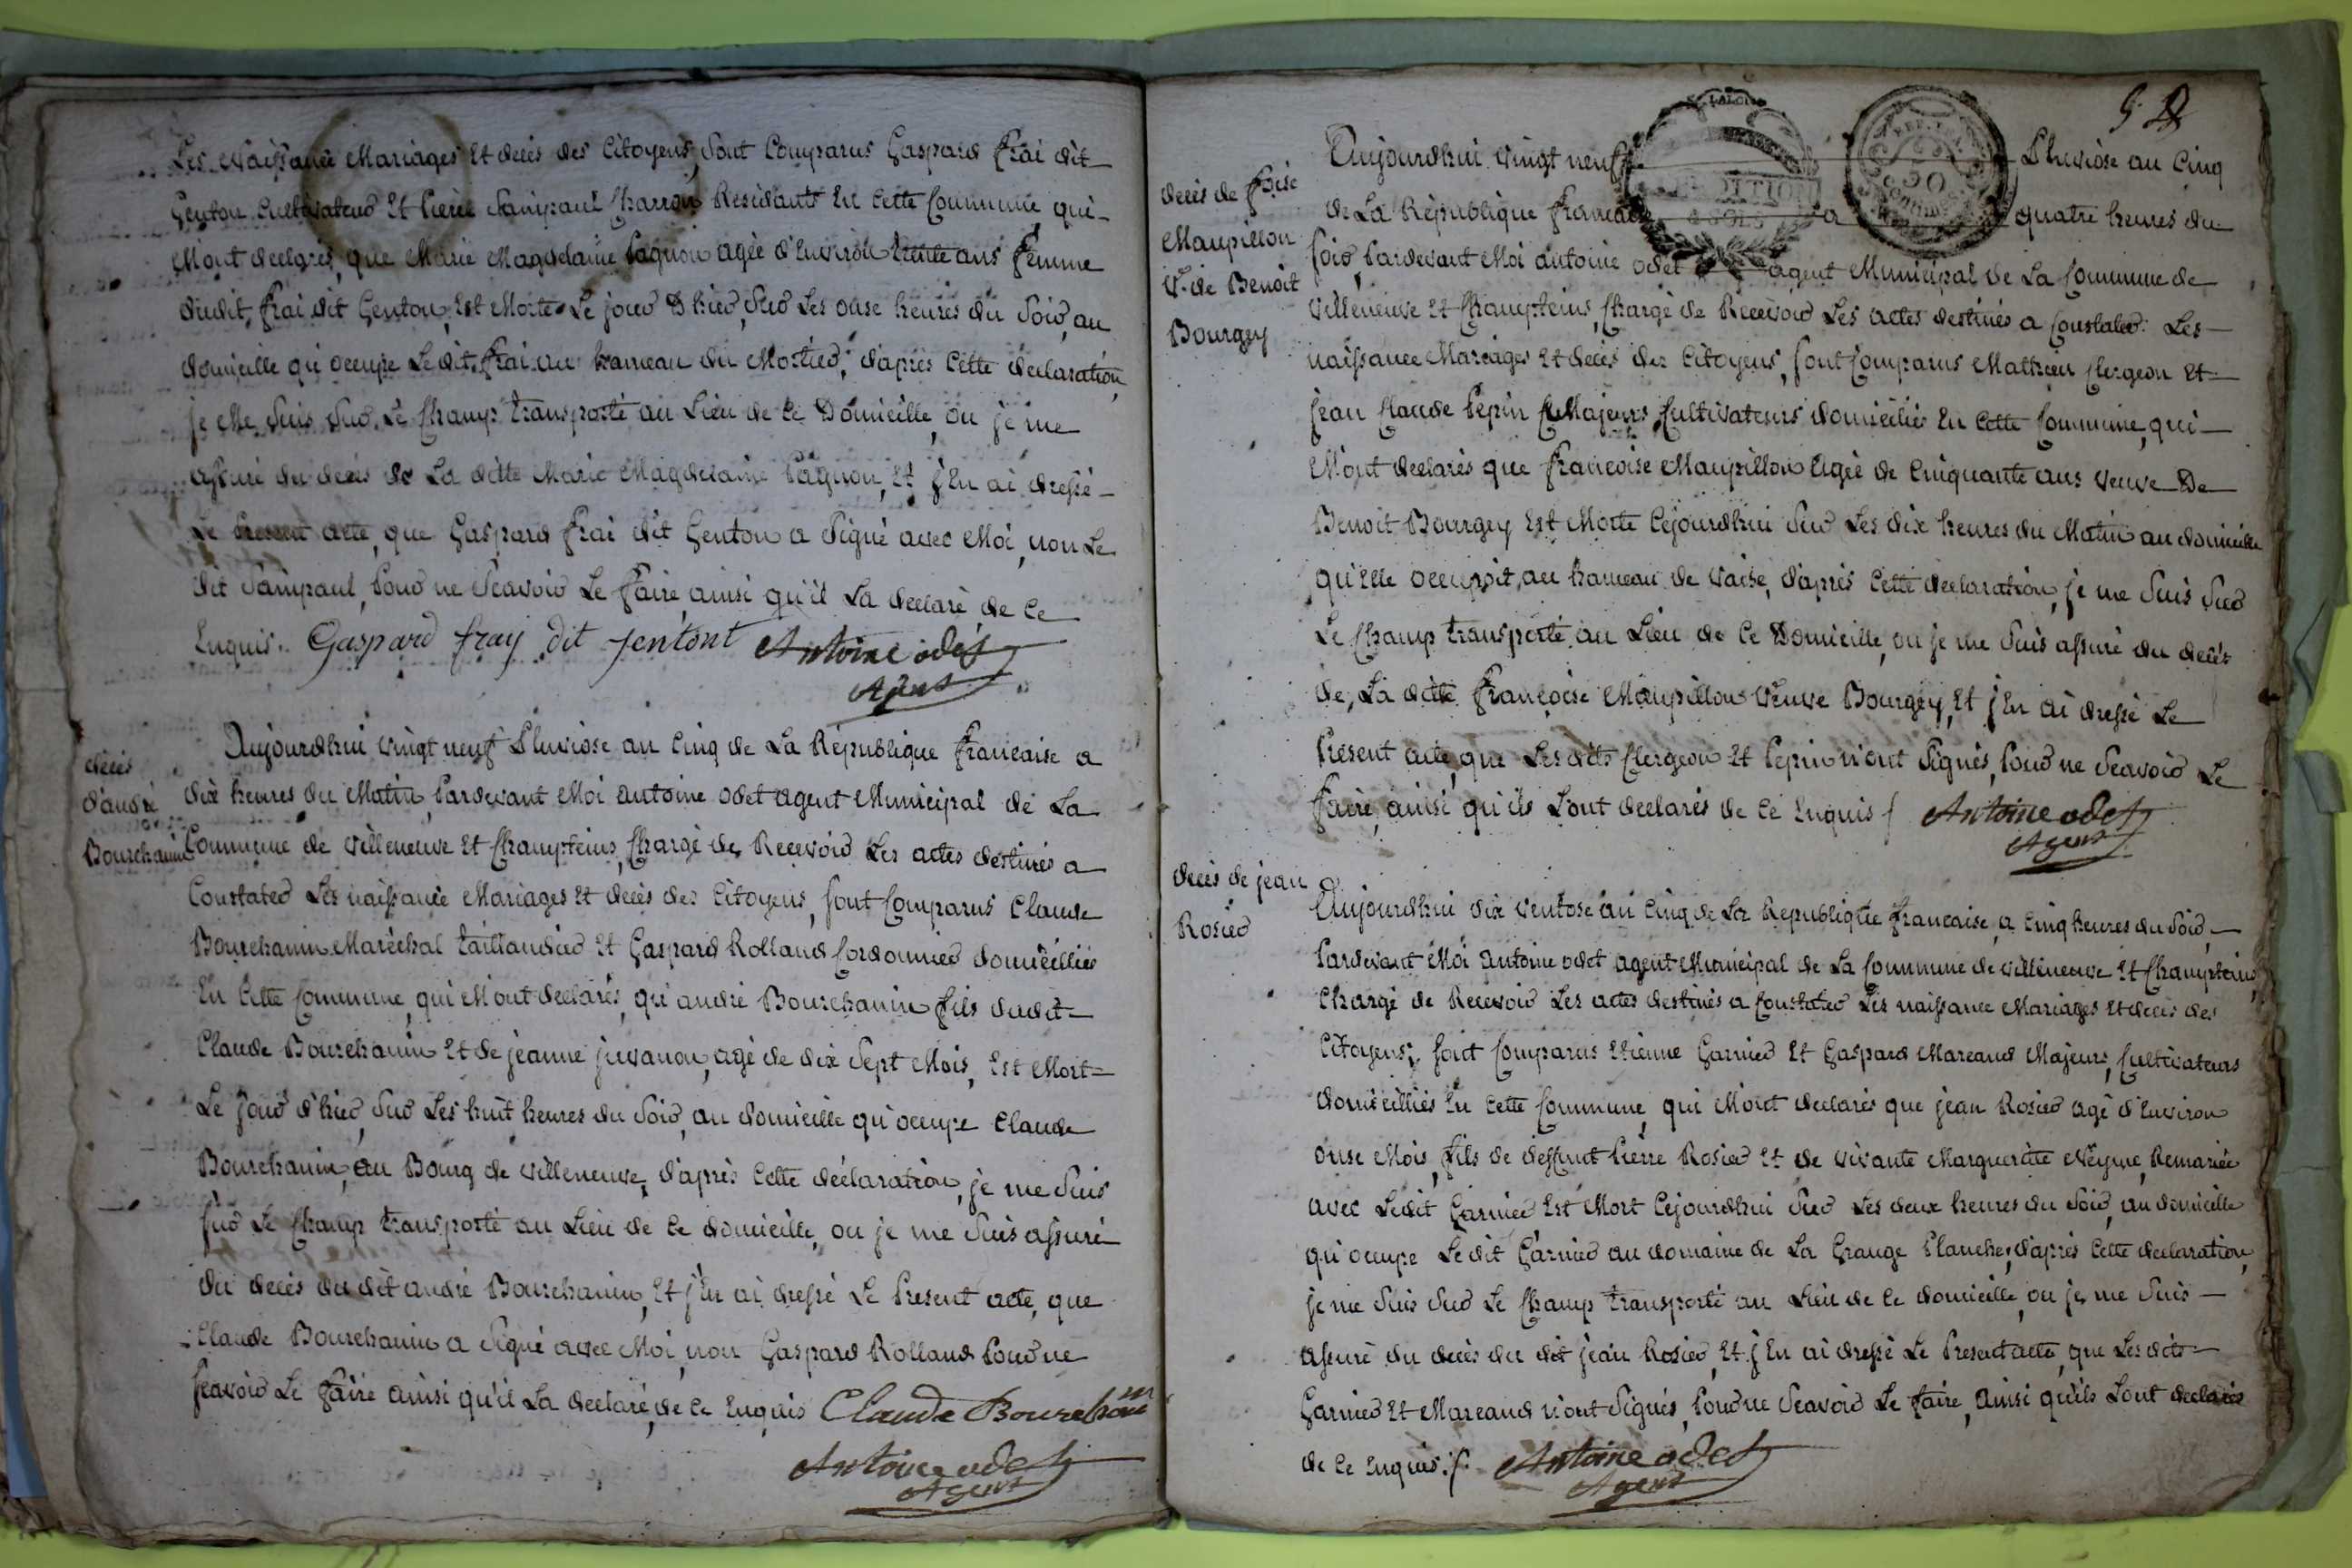 Les Naissance Mariages Et deces des Citoyens, Sont Comparus Gaspard frai dit
Genton Cultivateur Et Pierre Sainpaul Charron Residants En Cette Commune qui
M'ont declares, que Marie Magdelaine Pagnon agée d'Environ trente ans femme
dudit frai dit Genton, Est Morte Le jour D'hier, Sur Les onse heures du Soir, au
domicille qu'occupe Le dit frai au hameau du Mortier, d'apres Cette declaration,
je Me Suis Sur Le Champ transporté au Lieu de Ce Domicille, ou je me
assuré du deces de La ditte Marie Magdelaine Pagnon, Et j'En ai dressé
Le Present acte, que Gaspard frai dit Genton a Signé avec Moi, non Le
dit Sainpaul, Pour ne Scavoir Le faire, ainsi qu'il La declaré de Ce
Enquis. Gaspard fray dit jentont Antoine odet
Agent
déces
d'andré
Bourchanin
Aujourdhui vingt neuf Pluviose an Cinq de La Republique francaise a
dix heures du Matin, Pardevant Moi antoine odet agent Municipal de La
Commune de villeneuve Et Champteins, Chargé de Recevoir Les actes destinés a
Constater Les naissance Mariages Et deces des Citoyens, Sont Comparus Claude
Bourchanin Maréchal taillandier Et Gaspard Rolland Cordonnier domicilliés
En Cette Commune, qui M'ont declarés, qu'andré Bourchanin fils dudit
Claude Bourchanin Et de jeanne juvanon, agé de dix Sept Mois, Est Mort
Le jour d'hier, Sur Les huit heures du Soir, au domicille qu'occupe Claude
Bourchanin, au Bourg de villeneuve, d'après Cette déclaration, je me Suis
Sur Le Champ transporté au Lieu de Ce domicille, ou je me Suis assuré
du deces du dit andré Bourchanin, Et j'En ai dressé Le Present acte, que
Claude Bourchanin a Signé avec Moi, non Gaspard Rolland Pour ne
Scavoir Le faire ainsi qu'il La declaré, de Ce Enquis Claude Bourchanin
Antoine odet
Agent
Aujourdhui vingt neuf Pluviose an Cinq
deces de foise
Maupillon
Ve de Benoit
Bourgey
de La Republique francaise a quatre heures du
Soir, Pardevant Moi antoine odet agent Municipal de La Commune de
villeneuve Et Champteins, Chargé de Recevoir Les actes destinés a Constater Les
naissance Mariages Et deces des Citoyens, Sont Comparus Mathieu Clergeon Et
jean Claude Pepin Majeurs, Cultivateurs domiciliés En Cette Commune, qui
M'ont declarés que francoise Maupillon Agée de Cinquante ans veuve De
Benoit Bourgey Est Morte Cejourdhui Sur Les dix heures du Matin au domicille
qu'Elle occupoit, au hameau de vaise, d'apres Cette declaration, je me Suis Sur
Le Champ transporté au Lieu de Ce Domicille, ou je me Suis assuré du decés
de, La ditte francoise Maupillon Veuve Bourgey, Et j'En ai dressé Le
Présent acte, que Les dits Clergeon Et Pepin n'ont Signés, Pour ne Scavoir Le
faire, ainsi qu'ils Lont declarés de Ce Enquis Antoine odet
Agent
deces de jean
Rosier
Aujourdhui dix ventose an Cinq de La Republique francaise, a Cinq heures du Soir,
Pardevant Moi antoine odet agent Municipal de La Commune de villeneuve Et Champteins,
Chargé de Recevoir Les actes destinés a Constater Les naissance Mariages Et deces des
Citoyens, Sont Comparus Etienne Garnier Et Gaspard Mareand Majeurs, Cultivateurs
domicilliés En Cette Commune, qui M'ont declarés que jean Rosier agé d'Environ
onse Mois, fils de deffunt Pierre Rosier Et de vivante Marguerite Neyme, Remariée
avec Ledit Garnier, Est Mort Cejourdhui Sur Les deux heures du Soir, au domicille
qu'occupe Le dit Garnier au domaine de La Grange Planche, d'apres Cette declaration,
je me Suis Sur Le Champ transporté au Lieu de Ce domicille, ou je me Suis
assuré du deces du dit jean Rosier, Et j'En ai dressé Le Present acte, que Les dits
Garnier Et Mareand n'ont Signés, Pour ne Scavoir Le faire, ainsi qu'ils Lont declarés
de Ce Enquis. Antoine odet
Agent